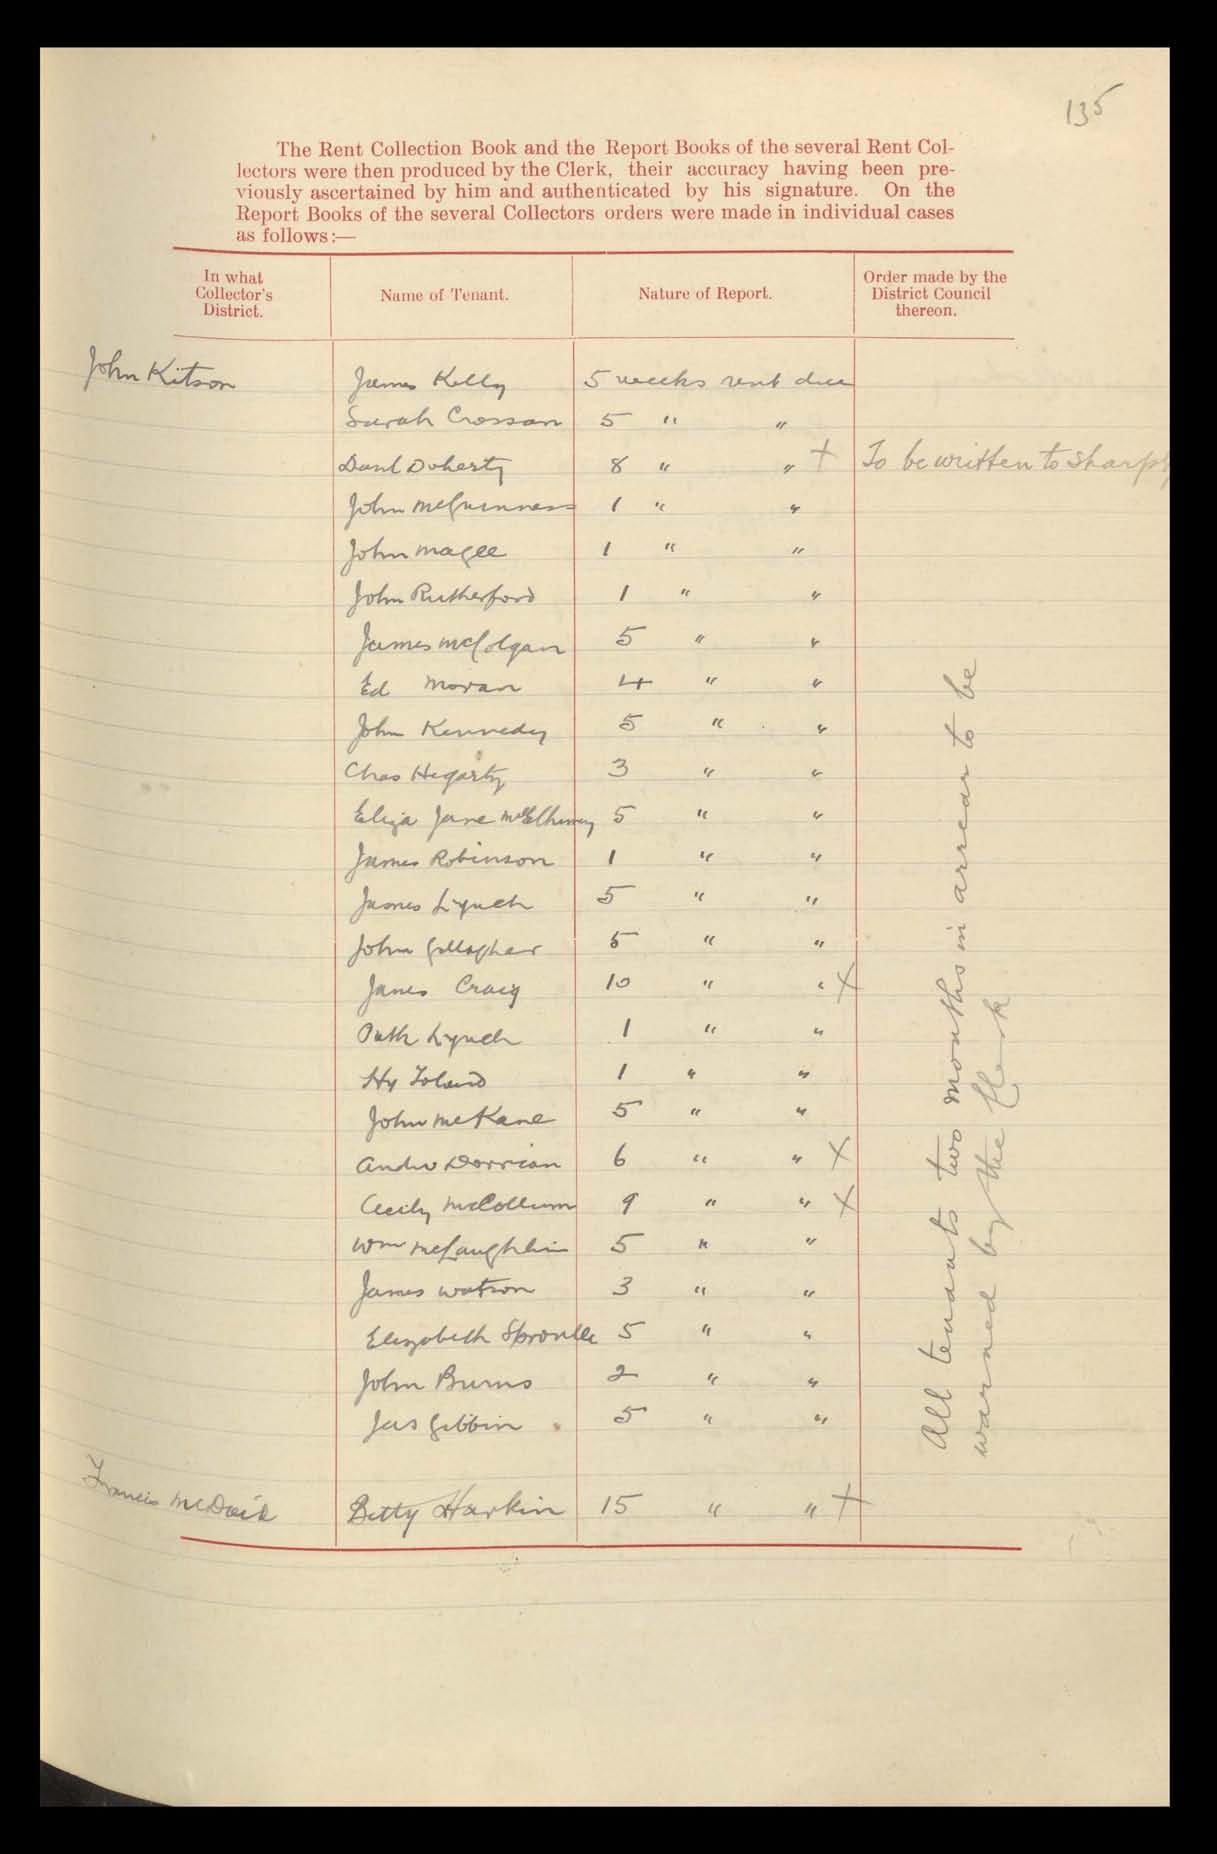 135
The Rent Collection Book and the Report Books of the several Rent Col-
lectors were then produced by the Clerk, their accuracy having been pre-
viously ascertained by him and authenticated by his signature. On the
Report Books of the several Collectors orders were made in individual cases
as follows:—
In what Collector's District. Name of Tenant. Nature of Report. Order made by the District Council thereon.
John Kitson James Kelly 5 weeks rent due
Sarah Crossan 5 " "
Danl Doherty 8 " " + To be written to sharply
John McGuinness 1 " "
John Magee 1 " "
John Rutherford 1 " "
James McColgan 5 " "
Ed Moran 4 " "
John Kennedy 5 " "
Chas Hegarty 3 " "
Eliza Jane McElhinney 5 " "
James Robinson 1 " "
James Lynch 5 " "
John Gallagher 5 " "
James Craig 10 " " +
Patk Lynch 1 " "
Hy Toland 1 " "
John McKane 5 " "
Andw Dorrian 6 " " +
Cecily McCollum 9 " " +
Wm McLaughlin 5 " "
James Watson 3 " "
Elizabeth Sproulle 5 " "
John Burns 2 " "
Jas Gibbin 5 " "
Francis McDaid Betty Harkin 15 " " +
All tenants two months in arrear to be
warned by the Clerk